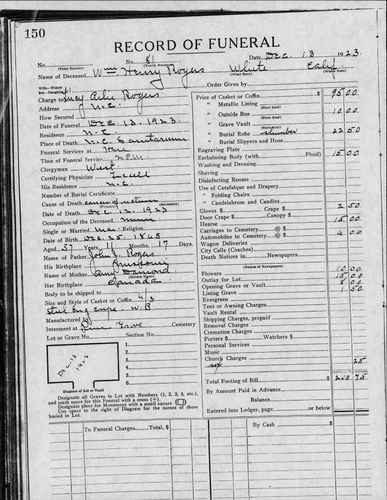 150
RECORD OF FUNERAL
No. No. 81 Date Dec. 13 1923
(Total Number) (Yearly Number)
Name of Deceased Wm Henry Rogers White Calif.
(What Race) (Where Born)
Wife—Widow
Son—Daughter of
Charge to Rogers
Address N.C.
How Secured
Date of Funeral Dec. 13, 1923.
Residence N.C.
Place of Death N.C. Sanitarium
Funeral Services at
Time of Funeral Service 2 P.M.
Clergyman West
Certifying Physician
His Residence N.C.
Number of Burial Certificate
Cause of Death
(Primary) (Secondary)
Date of Death Dec. 12, 1923
Occupation of the Deceased miner
Single or Married mar. Religion
Date of Birth Dec. 25 1865
Aged 57 Years 11 Months 17 Days.
Name of Father John J. Rogers
His Birthplace Missouri
Name of Mother Damond
Her Birthplace Canada
Body to be shipped to
Size and Style of Casket or Coffin 6/3
W.B.
Manufactured by
Interment at Pine Grove Cemetery
Lot or Grave No. Section No.
Dec. 13 1923
Diagram of Lot or Vault
Designate all Graves in Lot with Numbers (1, 2, 3, 4, etc.),
and mark space for this Funeral with a cross (+).
Designate place for Monument with a small square
Use space to right of Diagram for the names of those
buried in Lot.
Order Given by
Price of Casket or Coffin $ 95 00
" Metallic Lining
(State kind)
" Outside Box 10 00
(State kind)
" Grave Vault
(State kind)
" Burial Robe slumber 22 50
" Burial Slippers and Hose
Engraving Plate
Embalming Body (with Fluid) 15 00
Washing and Dressing
Shaving
Disinfecting Rooms
Use of Catafalque and Drapery
" Folding Chairs
" Candelabrum and Candles
Gloves $ Crape $ 2 50
Door Crape $ Canopy $
Hearse 15 00
Carriages to Cemetery @ $
Automobiles to Cemetery @ $ 6 00
Wagon Deliveries
City Calls (Coaches)
Death Notices in Newspapers
(Names of Newspapers)
Flowers 10 00
Outlay for Lot 15 00
Opening Grave or Vault 8 00
Lining Grave 1 50
Evergreen
Tent or Awning Charges
Vault Rental
Shipping Charges, prepaid
Removal Charges
Cremation Charges
Porters $ Watchers $
Personal Services
Music
Church Charges
tax 25
Total Footing of Bill $ 200 75
By Amount Paid in Advance
Balance
Entered into Ledger, page or below
To Funeral Charges By Cash